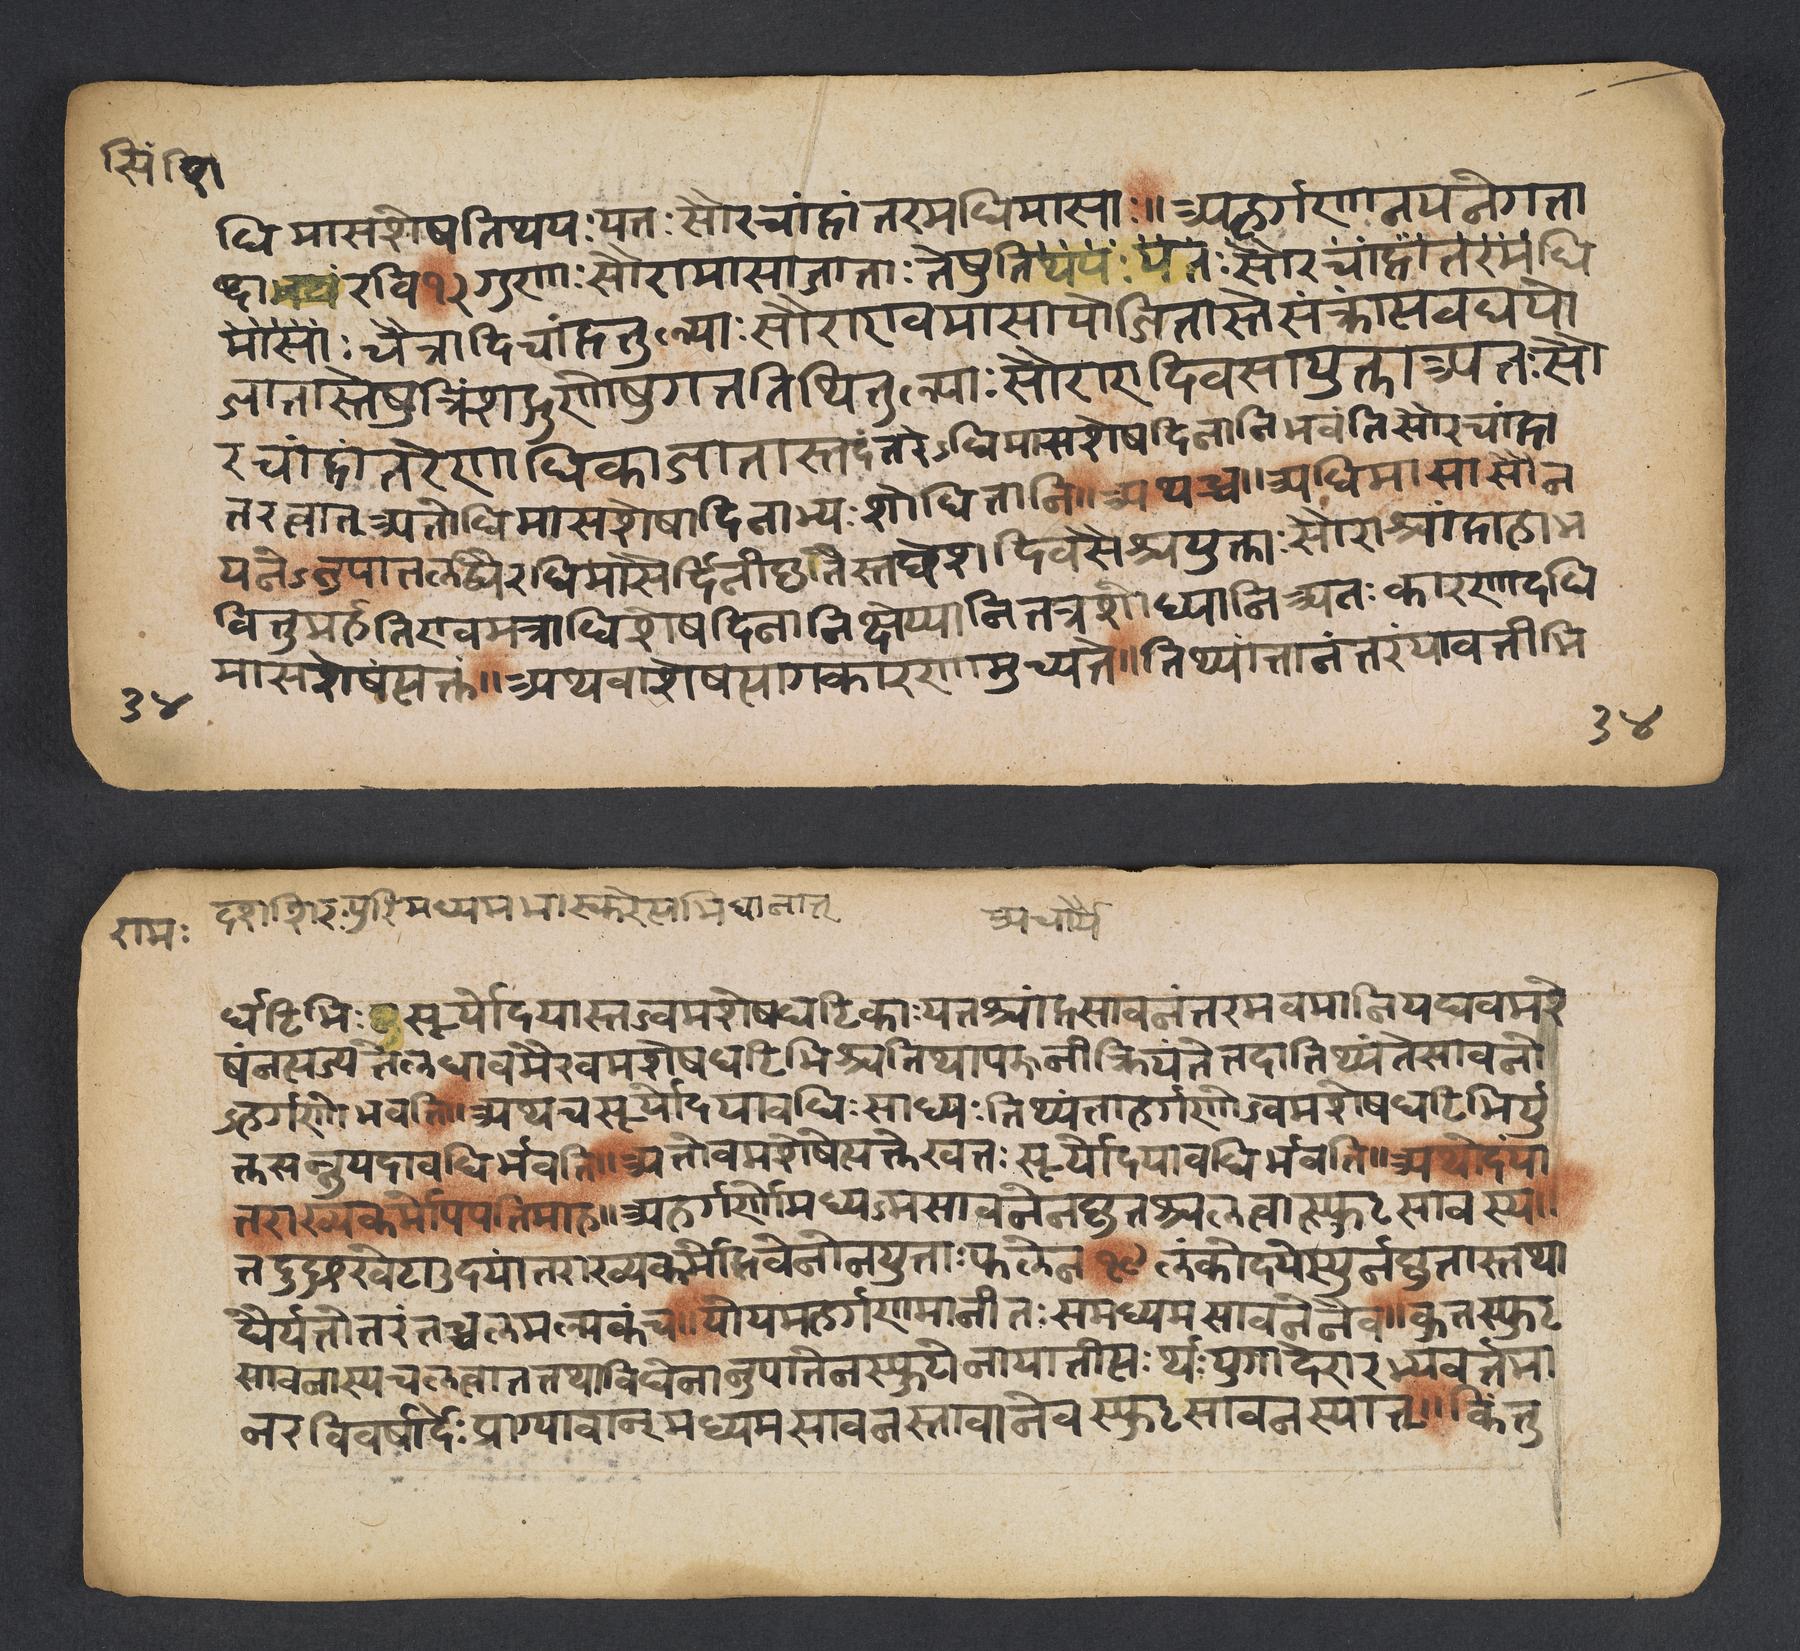 सिं शि
धिमासशेषतिथयः यतः सौरचांद्रांतरमधिमासाः॥ अहर्गणानयनेगता
ब्दा रवि१२गुणाः सौरामासाजाताः तेषुतिथयः यतः सौरचांद्रांतरमधि
मासाः चैत्रादिचांद्रतुल्याः सौराएवमासायोजितास्ते
जातास्तेषुत्रिंशद्गुणेषुगततिथितुल्याः सौराएवदिवसायुक्ता अतः सौ
रचांद्रांतरेणाधिकाजातास्तदंतरेऽधिमासशेषदिनानिभवंतिसौरचांद्रा
तरत्वात् अतोधिमासशेषादिनाभ्यः शोधितानि॥ अथच॥ अधिमासासौन
यनेऽनुपातलब्धैरधिमासैर्दिनीकृतैस्तच्छेशदिवसैश्चयुक्ताः सौराश्चांद्राहाभ
वितुमर्हतिएवमत्राधिशेषदिनानिक्षेप्यानितत्रशोध्यानि अतः कारणादधि
मासशेषंत्यक्तं॥ अथवाशेषत्यागकारणमुच्यते॥ तिथ्यांतानंतरंयावतीभि
३४
३४
रामः
मध्यमभास्करेत्यभिधानात्
र्घटिभिः सूर्योदयास्तऽवमशेषघटिकाः यतश्चांद्रसावनंतरमवमानियद्यवमशे
षंनत्यज्यतेलब्धावमैरवमशेषघटिभिश्चतिथ्यापऊनीक्रियंतेतदातिथ्यंतेसावनो
ऽहर्गणोभवति॥ अथचसूर्योदयावधिः साध्यः तिथ्यंताहर्गणोऽवमशेषघटिभिर्यु
क्तसन्नुयदावधिर्भवति॥ अतोवमशेषेत्यक्तेस्वतः सूर्योदयावधिर्भवति॥ अथोदंया
तराख्यकर्मोपपत्तिमाह॥ अहर्गणोमध्यऽमसावनेनकृतश्चलत्वात्स्फुटसावस्य॥
तदुत्थखेटाउदयांतराख्यकर्मोद्भवेनोनयुताः फलेन१९लंकोदयेस्युर्नकृतास्तथा
द्यैर्यतोतरंतच्चलमल्पकंच॥ योयमहर्गणमानीतः समध्यमसावनेनैव॥ कृतस्फुट
सावनास्यचलत्वात्तत्तथाविधेनानुपातेनस्फुटोनायातीत्यः र्थः युगादेरारभ्यवर्त्तमा
नरविवर्षादेः प्राग्यावान्मध्यमसावनस्तावानेवस्फुटसावनस्यात्॥ किंतु